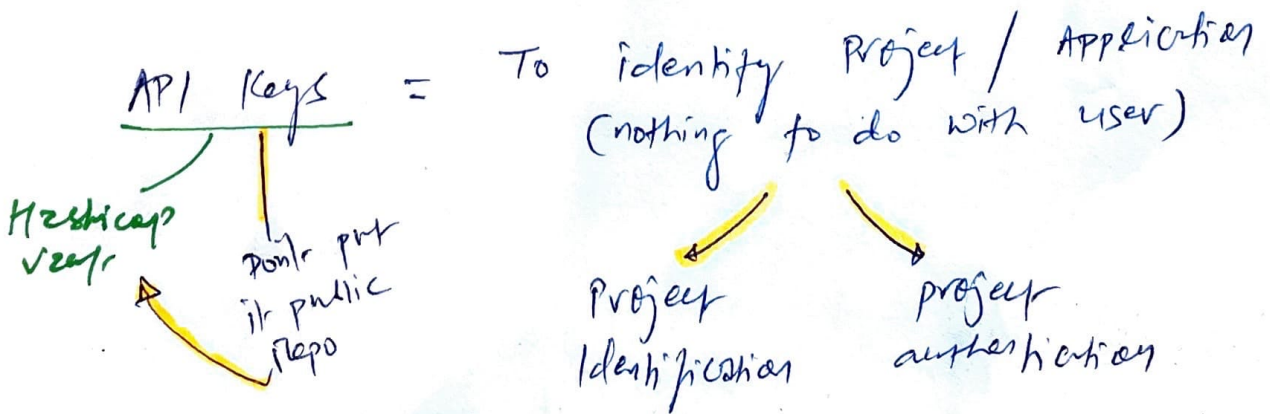 API Keys = To identify Project / Application
(nothing to do with user)
Hashicap
Vault
Don't put
it public
Repo
Project
Identification
project
authentication